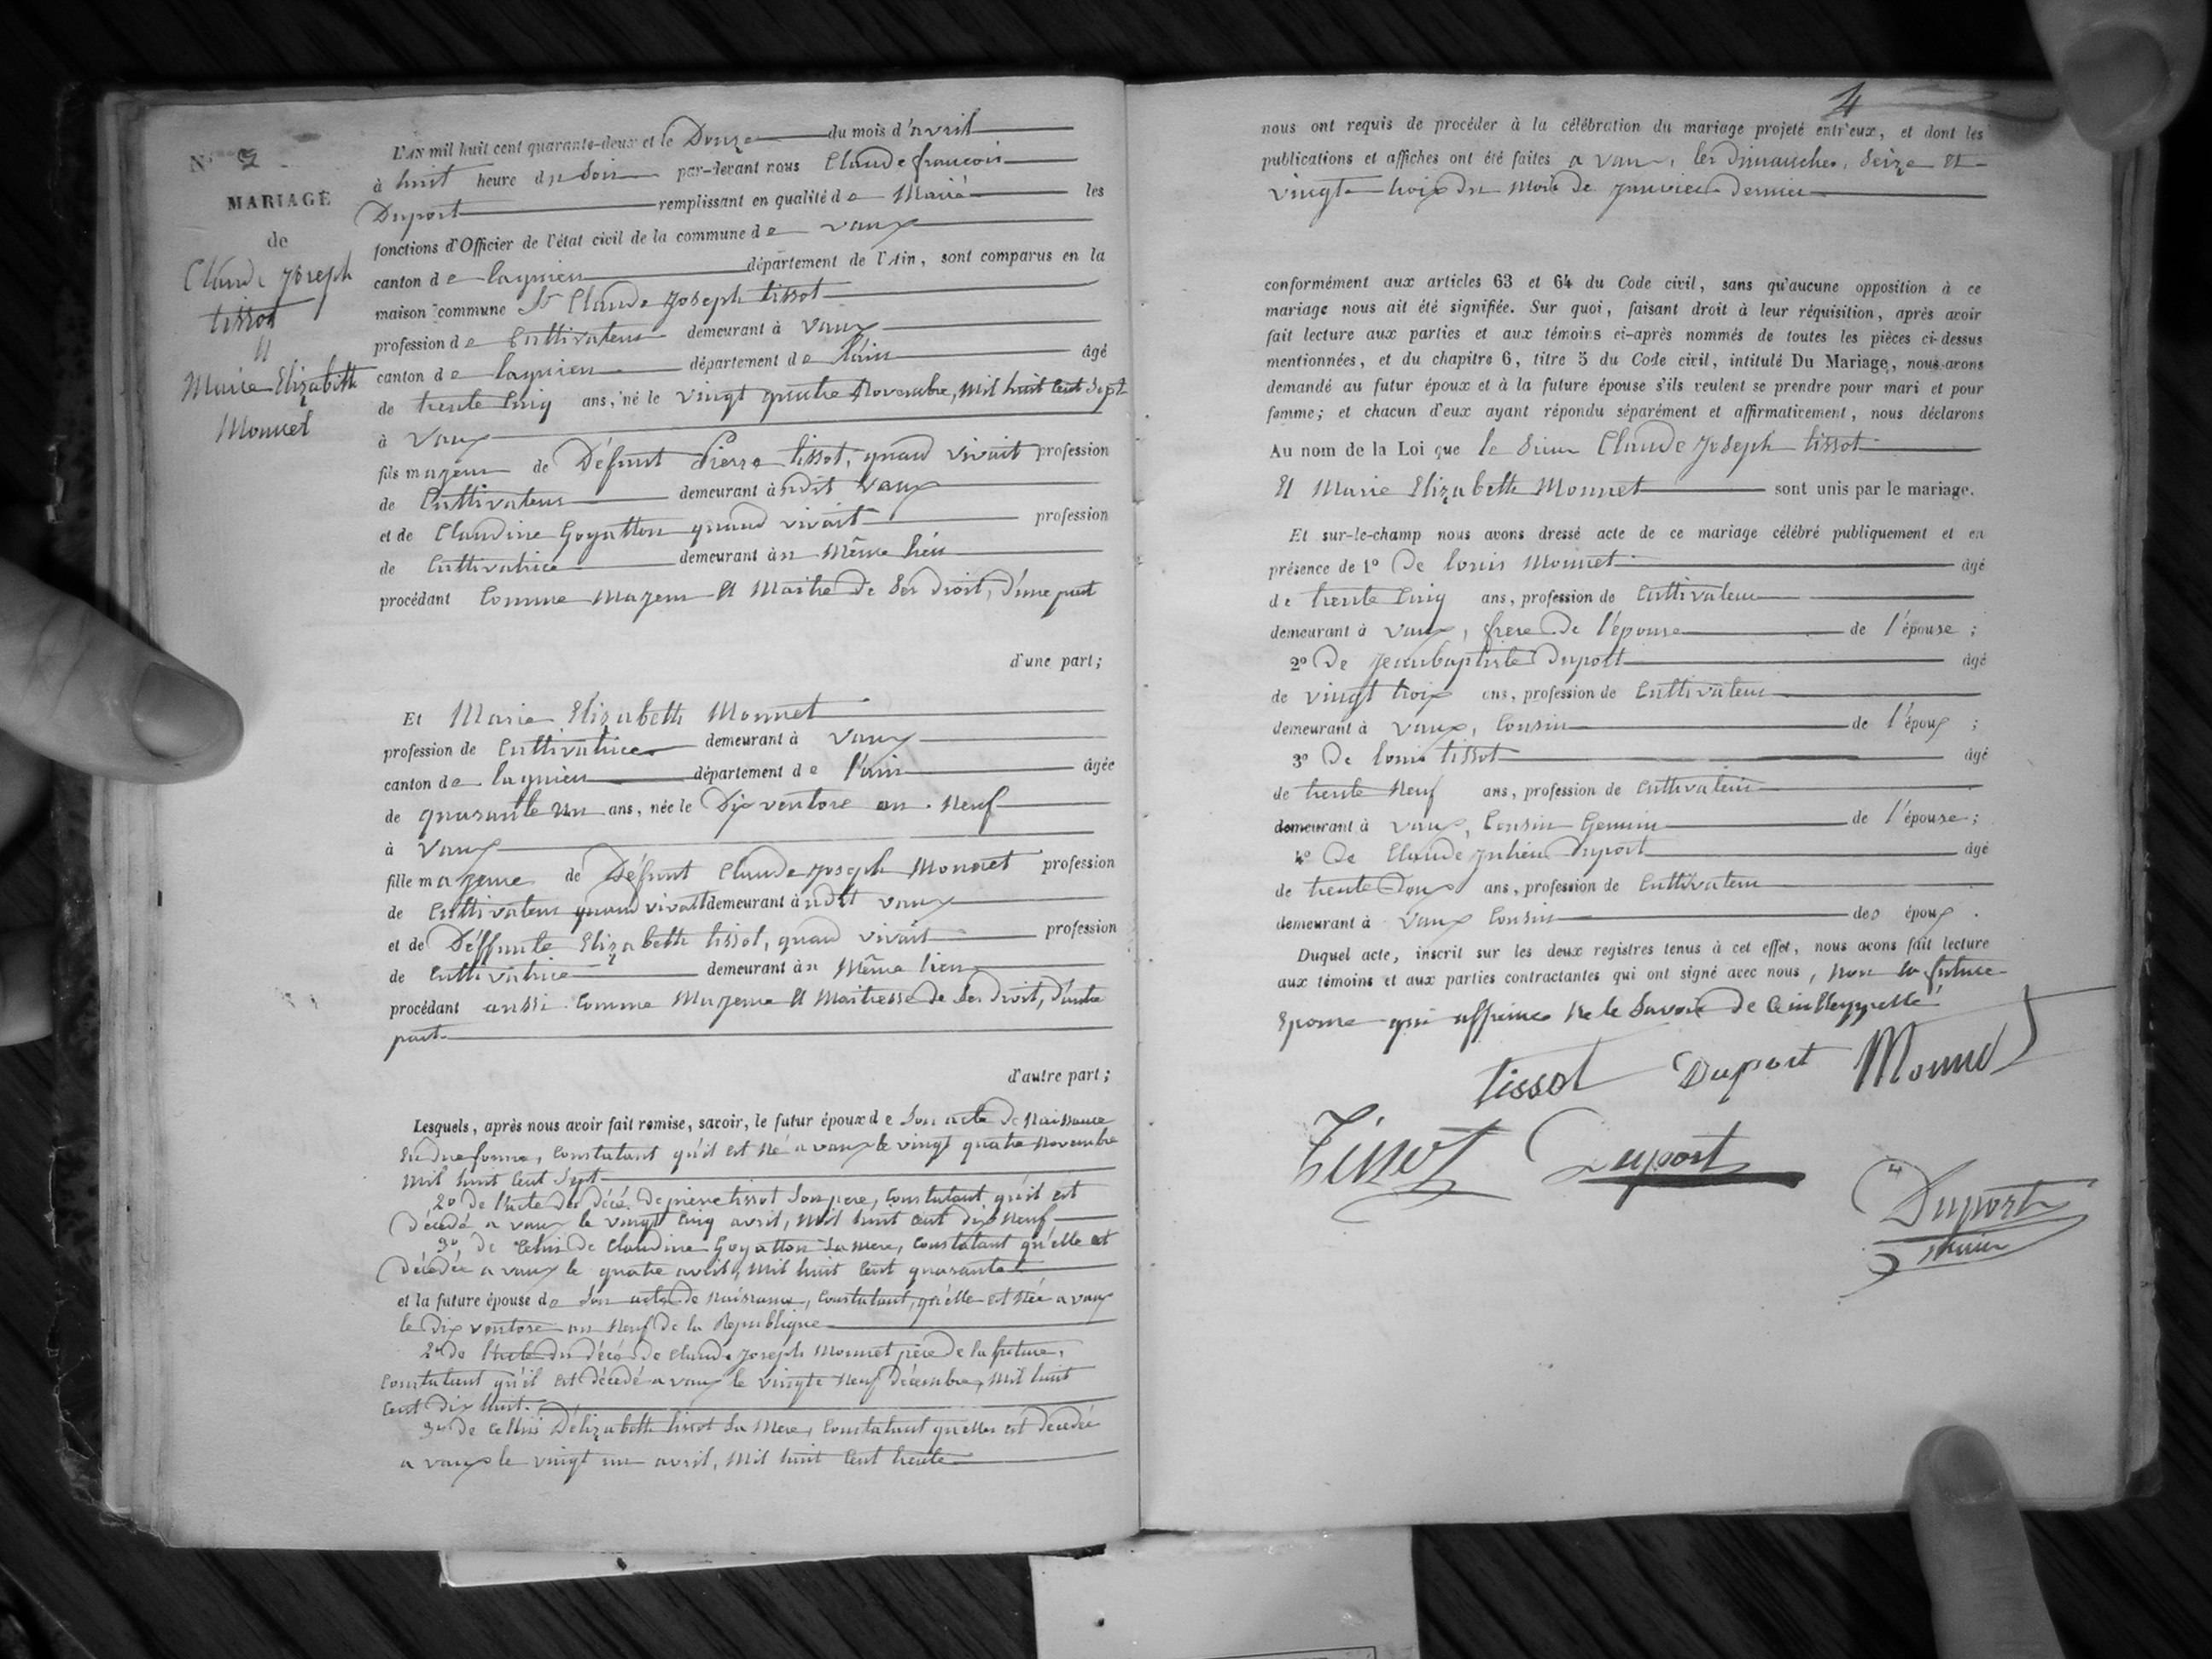 N° 7
MARIAGE
de
Claude Joseph
tissot
et
Marie Elizabeth
Monnet
L'AN mil huit cent quarante-deux et le Douze du mois d'avril
à huit heure du Soir par-devant nous Claude francois
Duport remplissant en qualité de Maire les
fonctions d'Officier de l'état civil de la commune de vaux
canton de lagnieu département de l'Ain, sont comparus en la
maison commune Sr Claude Joseph tissot
profession de Cultivateur demeurant à Vaux
canton de lagnieu département de l'ain âgé
de trente Cinq ans, né le vingt quatre Novembre, Mil huit Cent Sept
à Vaux
fils majeur de Défunt Pierre tissot, quand vivait profession
de Cultivateur demeurant àudit Vaux
et de Claudine Goyatton quand vivait profession
de Cultivatrice demeurant àu Même lieu
procédant Comme Majeur et Maitre de Ses droit, d'une part
d'une part;
Et Marie Elizabeth Monnet
profession de Cultivatrice demeurant à vaux
canton de lagnieu département de l'ain âgée
de quarante un ans, née le Dix ventose an Neuf
à Vaux
fille majeure de Défunt Claude Joseph Monnet profession
de Cultivateur quand vivait demeurant àudit vaux
et de Déffunte Elizabeth tissot, quand vivait profession
de Cultivatrice demeurant àu Même lieu
procédant aussi Comme Majeure et Maitresse de Ses droit, d'autre
part.
d'autre part;
Lesquels, après nous avoir fait remise, savoir, le futur époux de Son acte de Naissance
En due forme, Constatant qu'il est Né a vaux le vingt quatre Novembre
Mil huit Cent Sept
2° de l'acte de décé de pierre tissot Son pere, Constatant qu'il est
décédé a vaux le vingt Cinq avril, Mil huit Cent dix Neuf
3° de Celui de Claudine Goyatton Sa mere, Constatant qu'elle est
décédée a vaux le quatre avril, Mil huit Cent quarante
et la future épouse de Son acte de Naissance, Constatant, qu'elle est Née a vaux
le Dix ventose an Neuf de la Republique
2° de l'acte du décé de Claude Joseph Monnet père de la future,
Constatant qu'il est décédé a vaux le vingte Neuf décembre, Mil huit
Cent Dix huit.
3° de Cellui D'élizabeth tissot Sa Mere, Constatant quelle est decedée
a vaux le vingt un avril, Mil huit Cent trente
4
nous ont requis de procéder à la célébration du mariage projeté entr'eux, et dont les
publications et affiches ont été faites a vaux, les dimanches, Seize Et
vingt trois du Mois de Janvier dernier
conformément aux articles 63 et 64 du Code civil, sans qu'aucune opposition à ce
mariage nous ait été signifiée. Sur quoi, faisant droit à leur réquisition, après avoir
fait lecture aux parties et aux témoins ci-après nommés de toutes les pièces ci-dessus
mentionnées, et du chapitre 6, titre 5 du Code civil, intitulé Du Mariage, nous avons
demandé au futur époux et à la future épouse s'ils veulent se prendre pour mari et pour
femme; et chacun d'eux ayant répondu séparément et affirmativement, nous déclarons
Au nom de la Loi que le Sieur Claude Joseph tissot
Et Marie Elizabeth Monnet sont unis par le mariage.
Et sur-le-champ nous avons dressé acte de ce mariage célébré publiquement et en
présence de 1° De louis Monnet âgé
de trente Cinq ans, profession de Cultivateur
demeurant à vaux, frere de l'épouse de l'épouse;
2° De Jeanbaptiste Duport âgé
de vingt trois ans, profession de Cultivateur
demeurant à vaux, Cousin de l'époux;
3° De louis tissot âgé
de trente Neuf ans, profession de Cultivateur
demeurant à vaux, Cousin Germin de l'épouse;
4° De Claude Julien Duport âgé
de trente Doux ans, profession de Cultivateur
demeurant à Vaux Cousin des époux.
Duquel acte, inscrit sur les deux registres tenus à cet effet, nous avons fait lecture
aux témoins et aux parties contractantes qui ont signé avec nous, Non la future
Epouse qui affirme Ne le Savoir de
tissot Duport Monnet
Tissot Duport
Duport
Maire